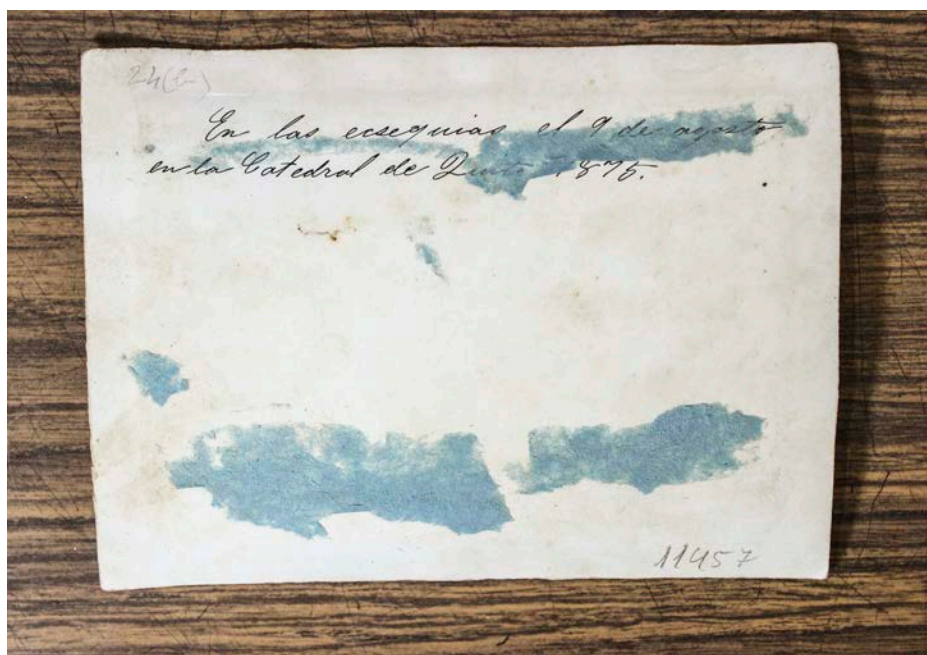 24(b)
En las ecsequias el 9 de agosto
en la Catedral de Quito 1875.
11457